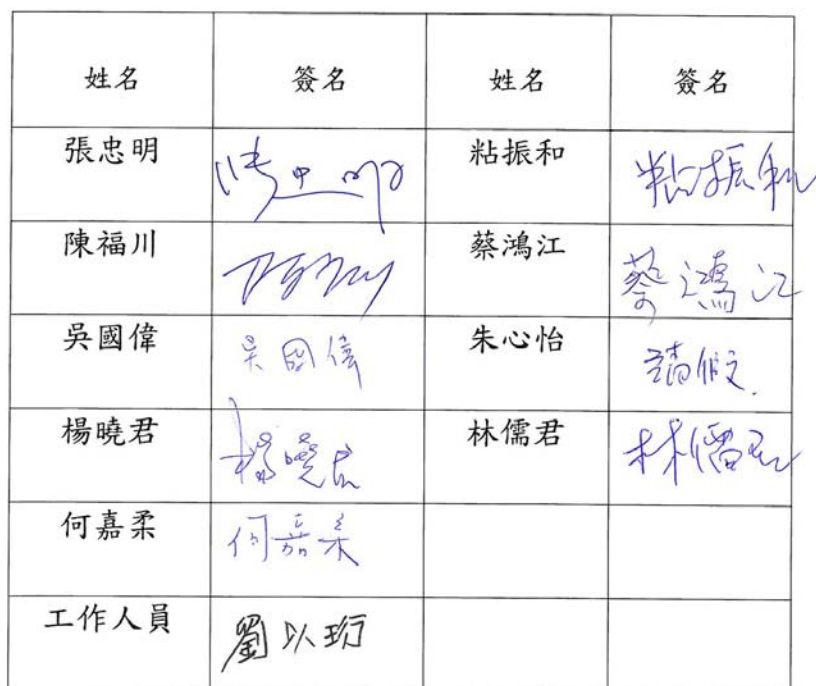 姓名 簽名 姓名 簽名
張忠明 張忠明 粘振和 粘振和
陳福川 蔡鴻江 蔡鴻江
吳國偉 吳國偉 朱心怡 請假
楊曉君 楊曉君 林儒君 林儒君
何嘉柔 何嘉柔
工作人員 劉以珩